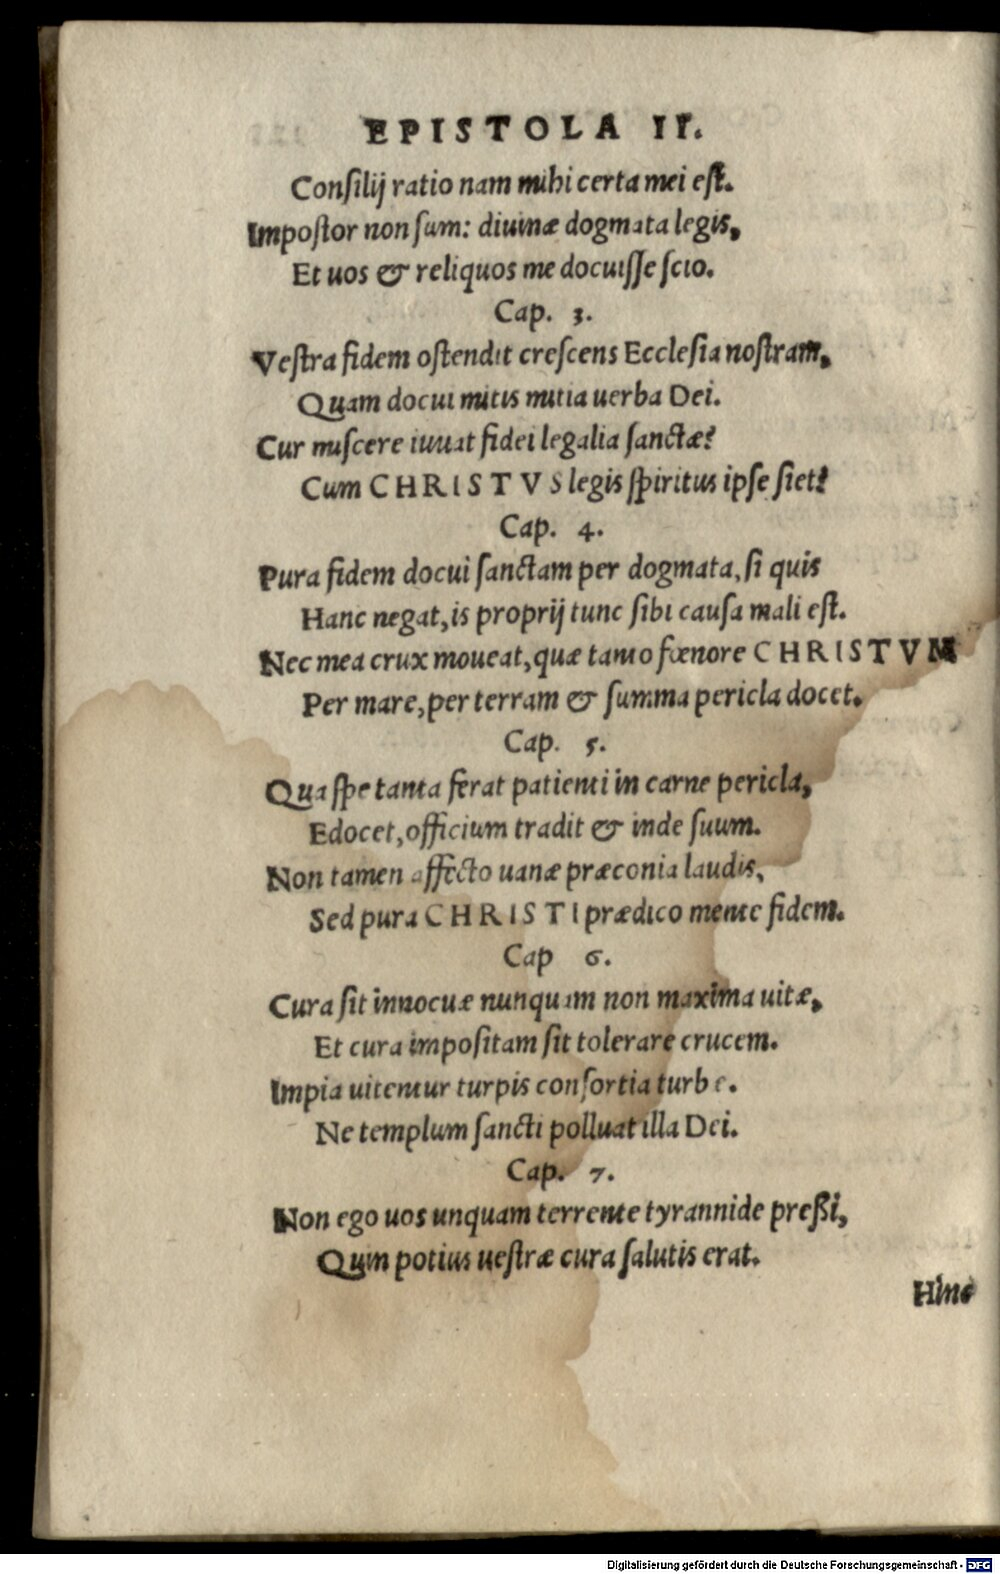 EPISTOLA II.
Consilij ratio nam mihi certa mei est.
Impostor non sum: diuinæ dogmata legis,
Et uos & reliquos me docuisse scio.
Cap. 3.
Vestra fidem ostendit crescens Ecclesia nostram,
Quam docui mitis mitia uerba Dei.
Cur miscere iuuat fidei legalia sanctæ?
Cum CHRISTVS legis spiritus ipse siet?
Cap. 4.
Pura fidem docui sanctam per dogmata, si quis
Hanc negat, is proprij tunc sibi causa mali est.
Nec mea crux moueat, quæ tanto fœnore CHRISTVM
Per mare, per terram & summa pericla docet.
Cap. 5.
Qua spe tanta ferat patienti in carne pericla,
Edocet, officium tradit & inde suum.
Non tamen affecto uanæ præconia laudis,
Sed pura CHRISTI prædico mente fidem.
Cap 6.
Cura sit innocuæ nunquam non maxima uitæ,
Et cura impositam sit tolerare crucem.
Impia uitentur turpis consortia turbe.
Ne templum sancti polluat illa Dei.
Cap. 7.
Non ego uos unquam terrente tyrannide preßi,
Quin potius uestræ cura salutis erat.
Hinc
Digitalisierung gefördert durch die Deutsche Forschungsgemeinschaft - DFG